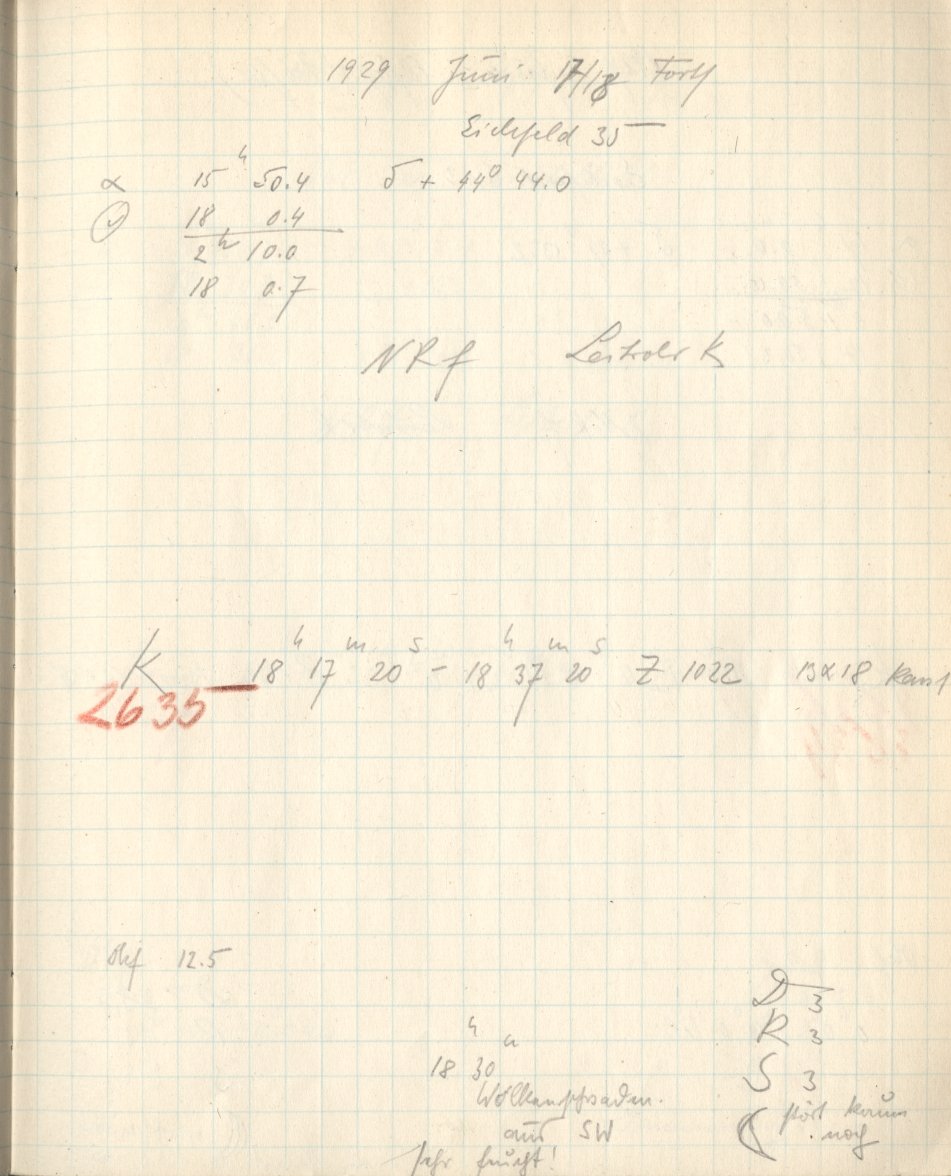 1929 Juni 17/18 Forts
Eichsfeld 35
α 15 h 50.4 δ + 44° 44.0
18 0.4
2 h 10.0
18 0.7
NRf Leitrohr K
K 18 h 17 m 20 s – 18 h 37 m 20 s Z 1022 13x18
2635
Okf 12.5
D 3
R 3
S 3
18 h 30 m
Wolkenschwaden
aus SW
sehr feucht!
( stört kaum
noch